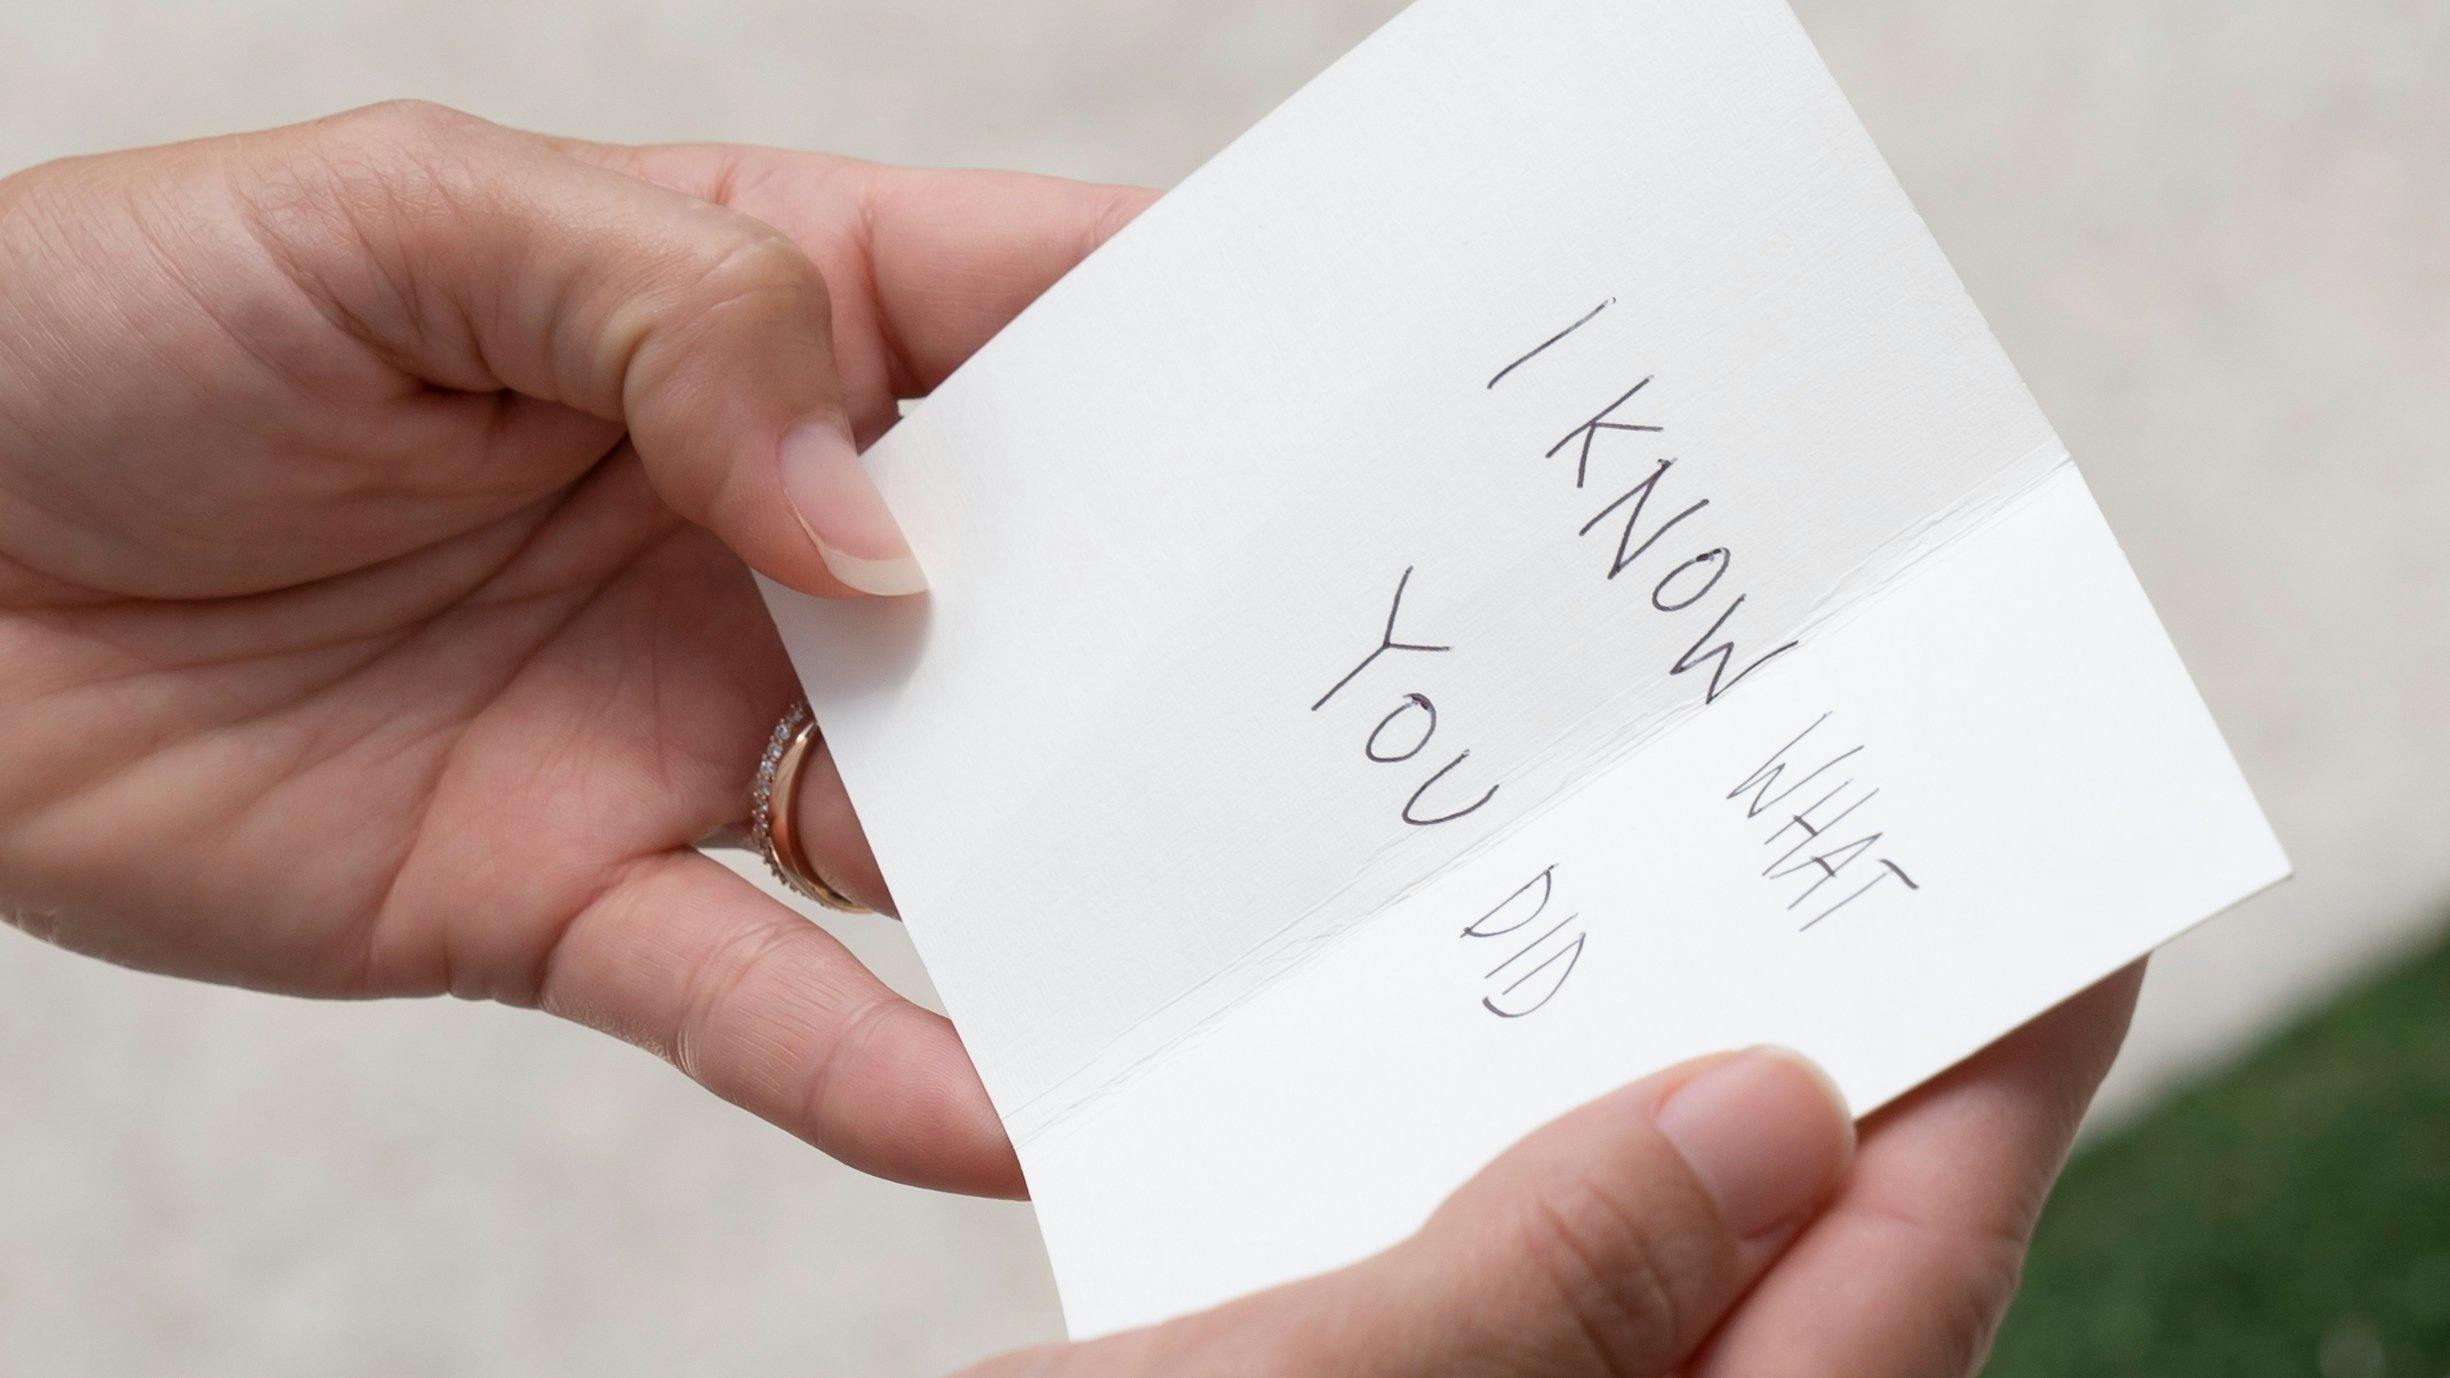 I KNOW WHAT
YOU DID